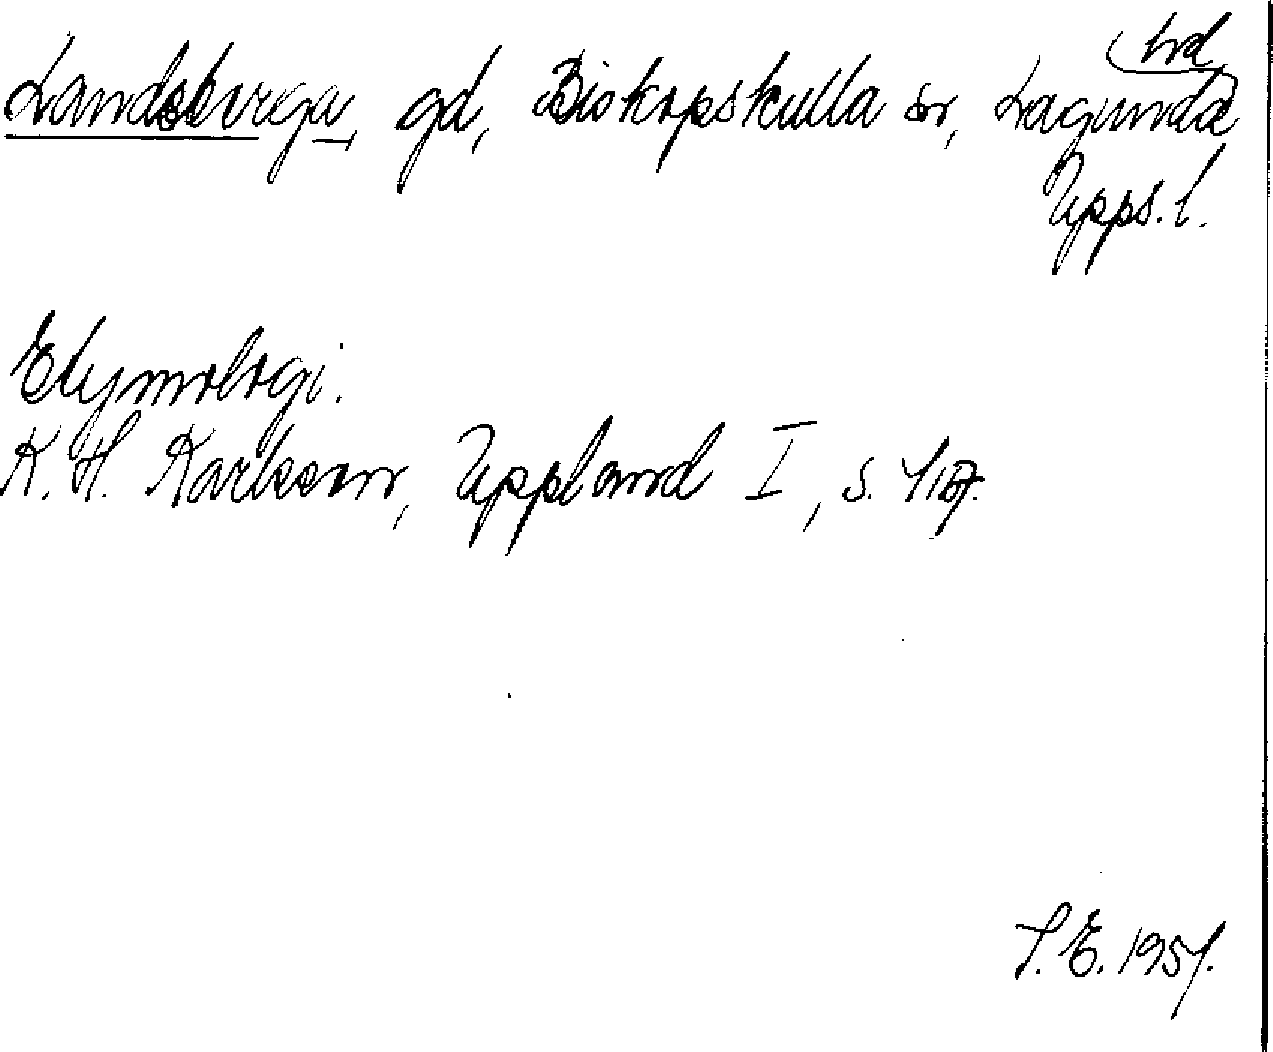 Landsberga, gd, Biskopskulla sn, Lagunda hd
Upps. l.
Etymologi.
K. H. Karlsson, Uppland I, s.
S. E. 1951.